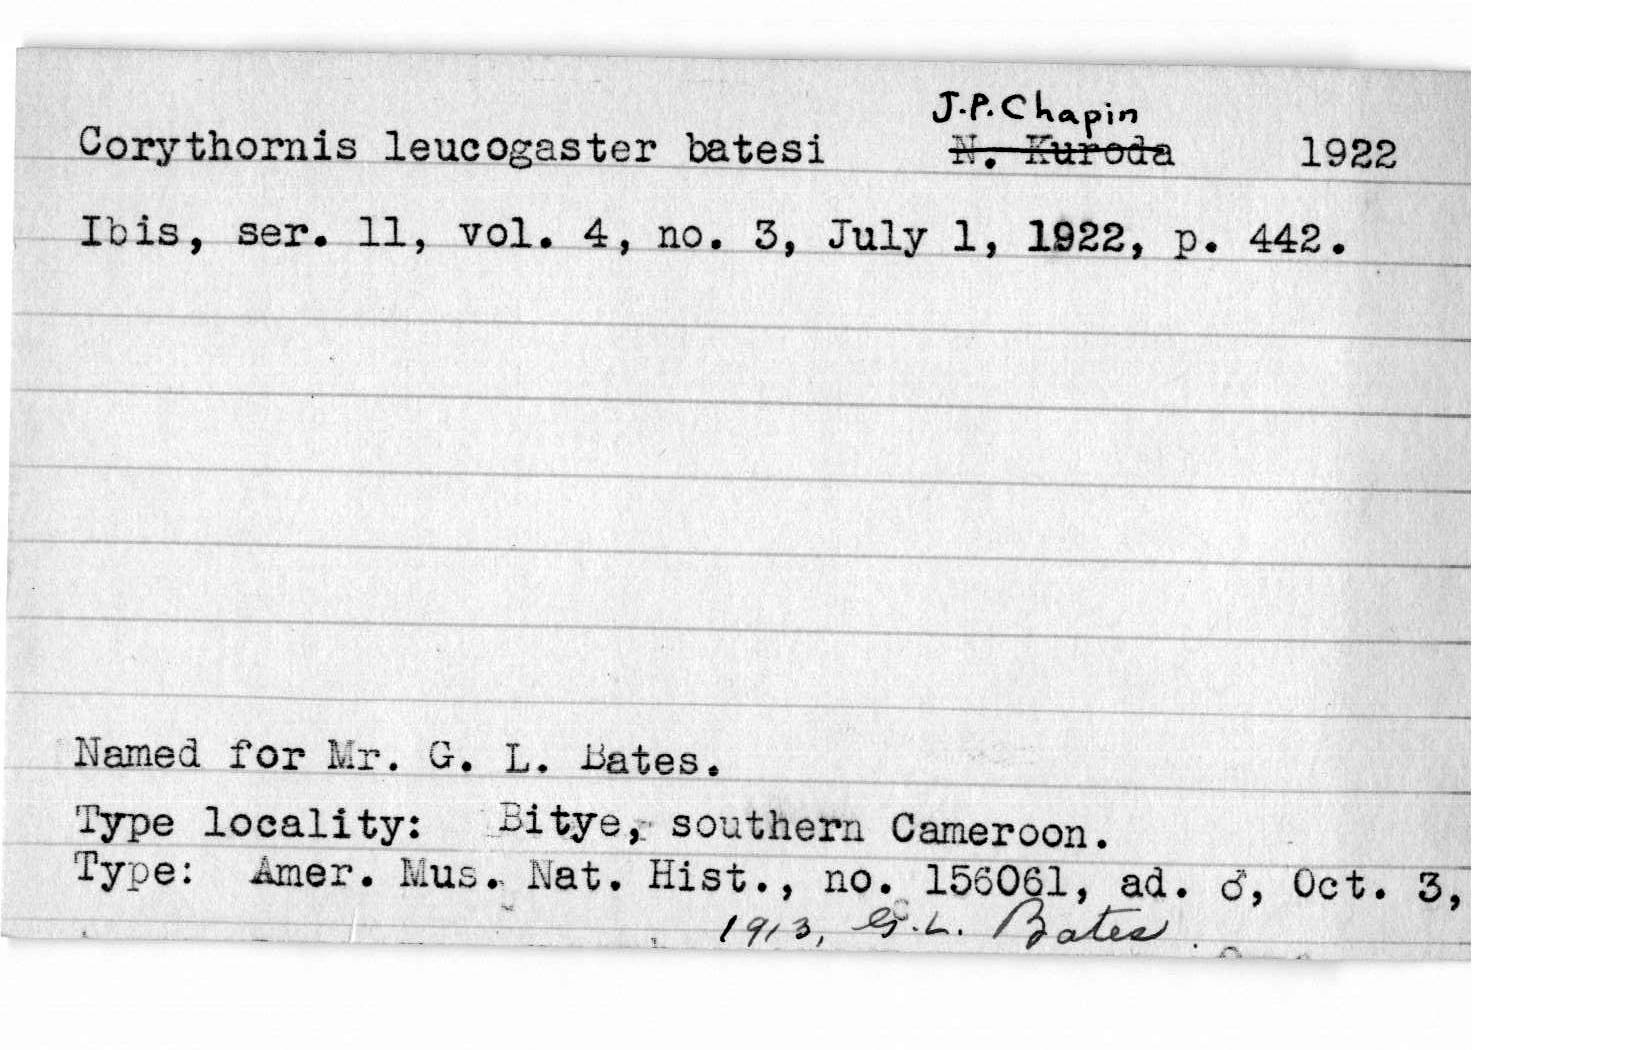 J.P. Chapin
Corythornis leucogaster batesi N. Kuroda 1922
Ibis, ser. 11, vol. 4, no. 3, July 1, 1922, p. 442.
Named for Mr. G. L. Bates.
Type locality: Bitye, southern Cameroon.
Type: Amer. Mus. Nat. Hist., no. 156061, ad. ♂, Oct. 3,
1913, G.L. Bates.